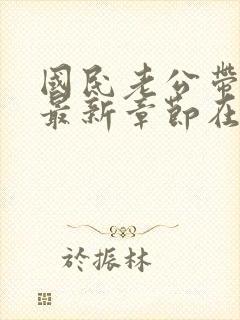 國民老公帶
最新章節在
於振林